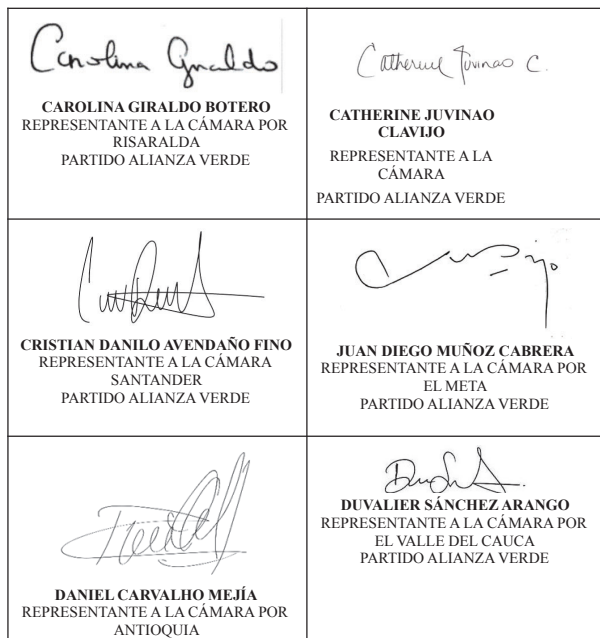 Carolina Giraldo
CAROLINA GIRALDO BOTERO
REPRESENTANTE A LA CÁMARA POR
RISARALDA
PARTIDO ALIANZA VERDE
Catherine Juvinao C.
CATHERINE JUVINAO
CLAVIJO
REPRESENTANTE A LA
CÁMARA
PARTIDO ALIANZA VERDE
CRISTIAN DANILO AVENDAÑO FINO
REPRESENTANTE A LA CÁMARA
SANTANDER
PARTIDO ALIANZA VERDE
JUAN DIEGO MUÑOZ CABRERA
REPRESENTANTE A LA CÁMARA POR
EL META
PARTIDO ALIANZA VERDE
DANIEL CARVALHO MEJÍA
REPRESENTANTE A LA CÁMARA POR
ANTIOQUIA
DUVALIER SÁNCHEZ ARANGO
REPRESENTANTE A LA CÁMARA POR
EL VALLE DEL CAUCA
PARTIDO ALIANZA VERDE